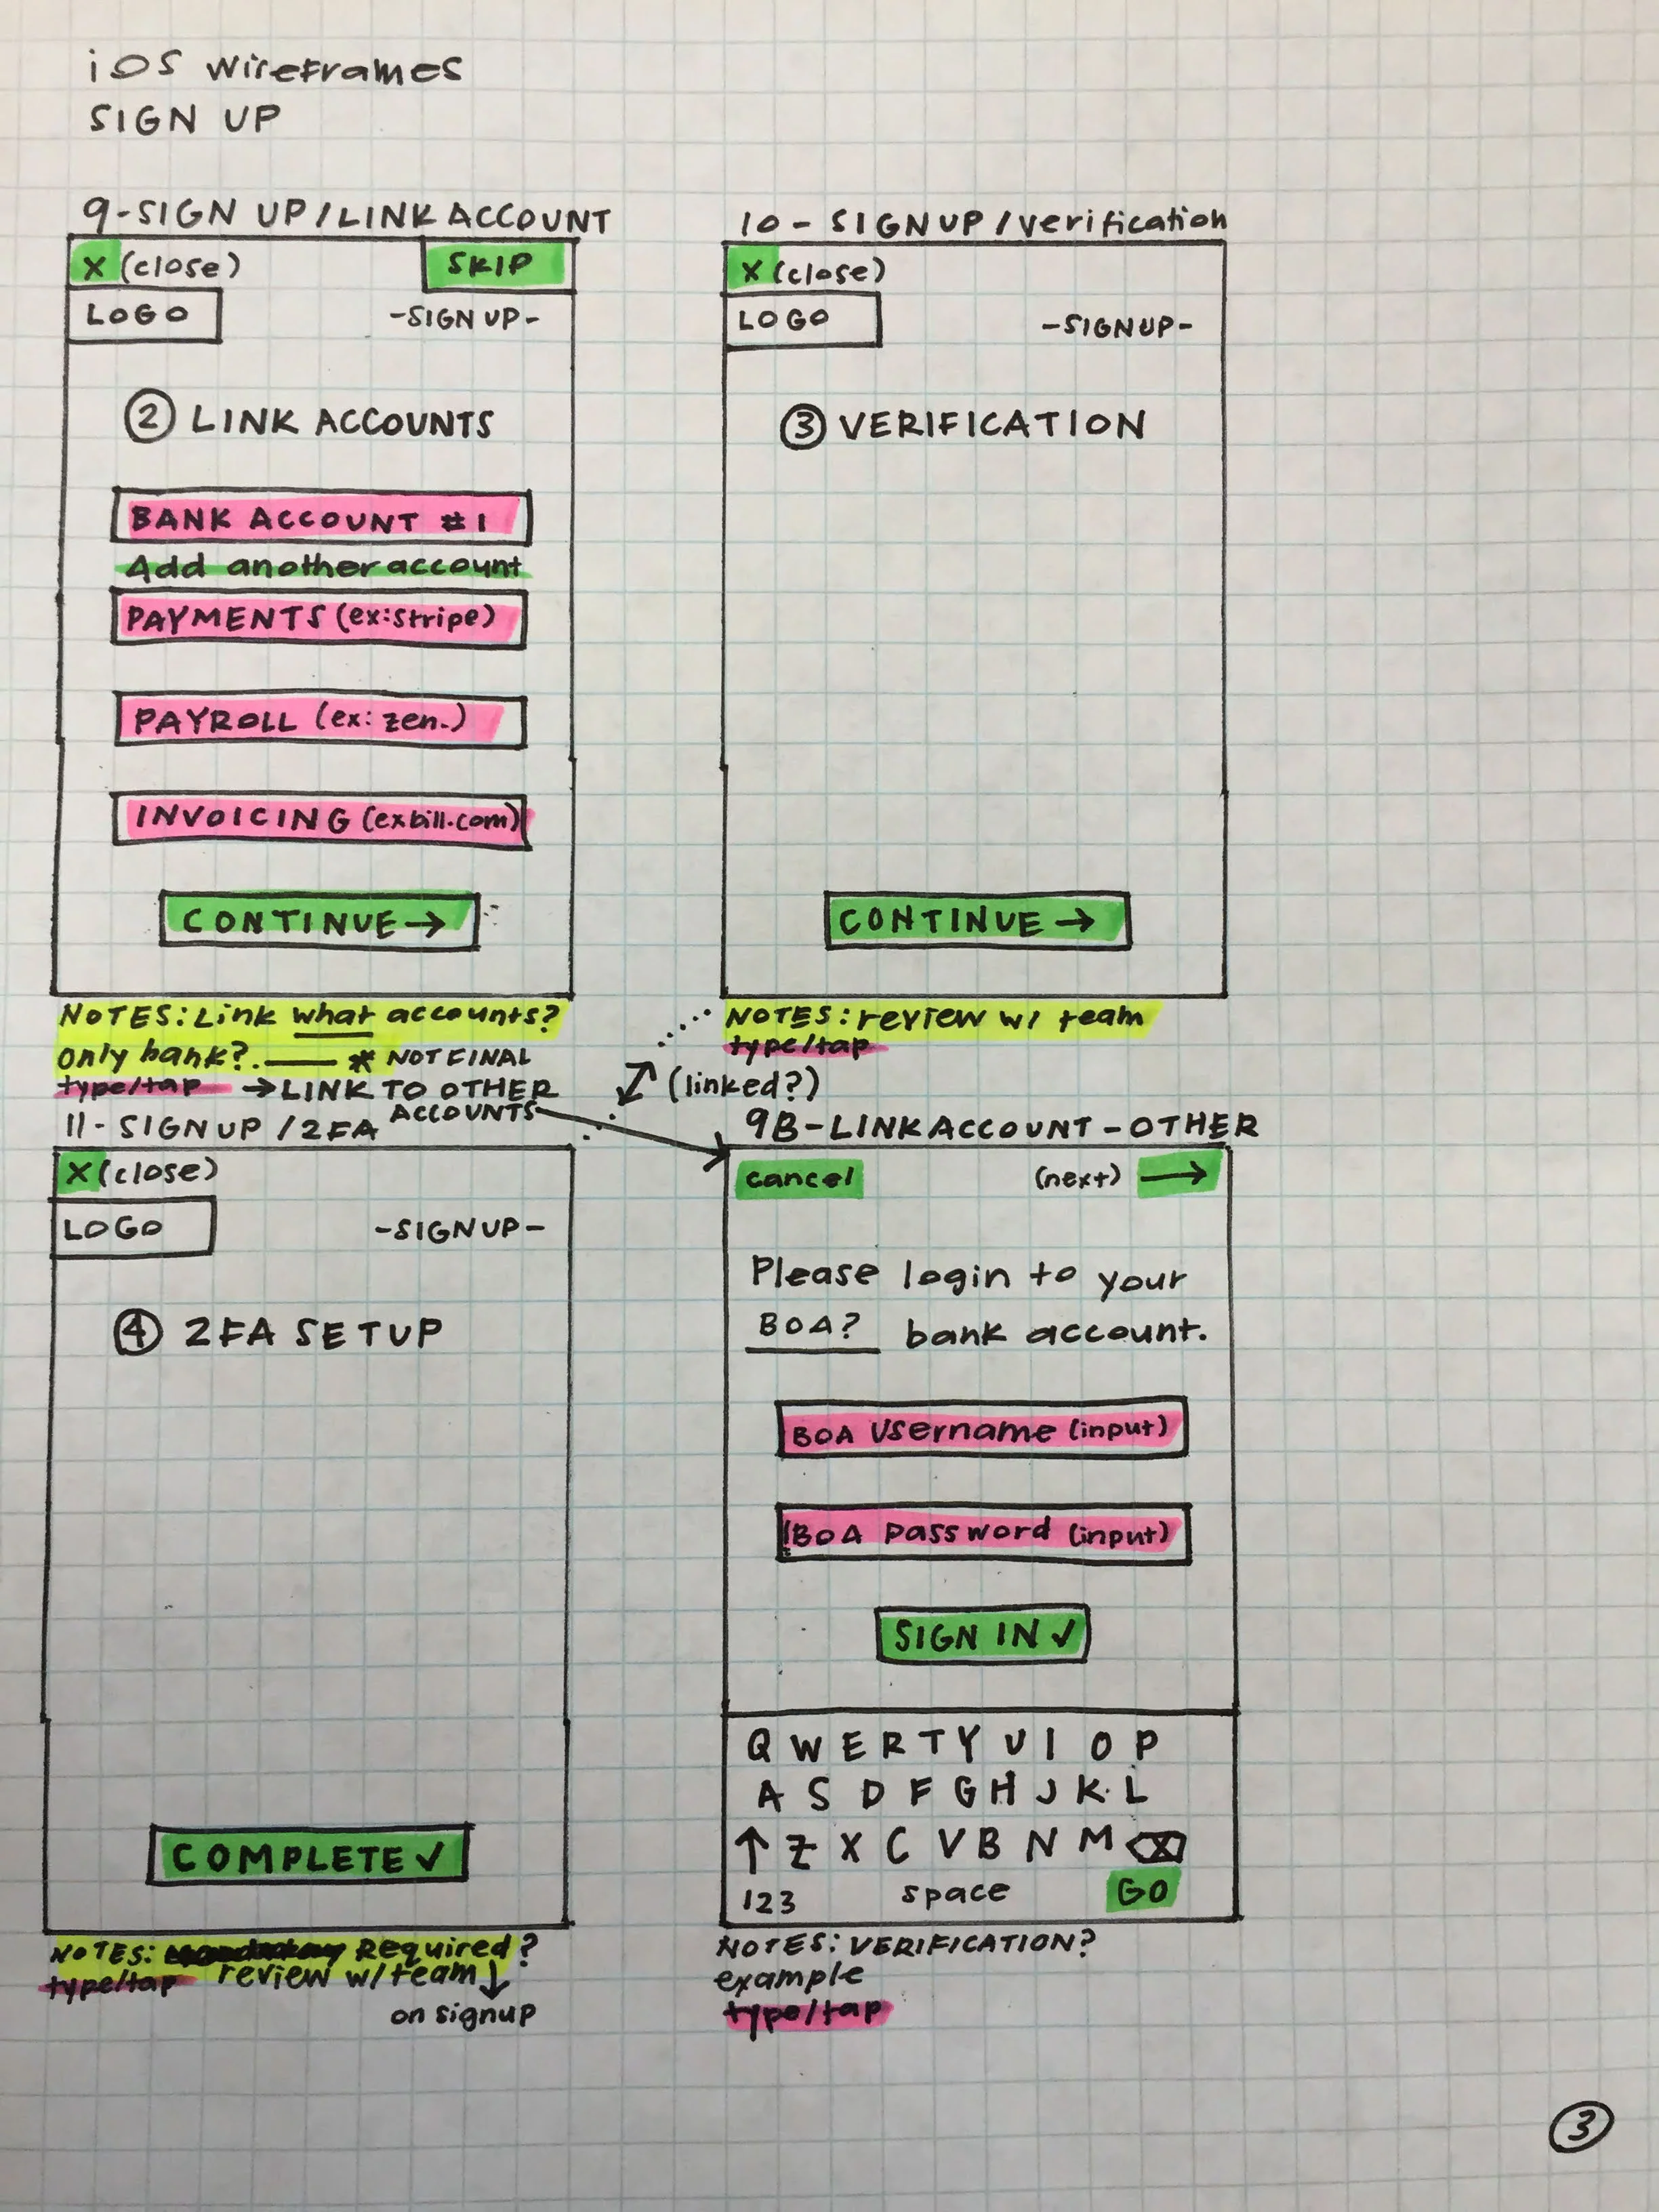 iOS wireframes
SIGN UP
9-SIGN UP/LINK ACCOUNT
X (close)
SKIP
LOGO
-SIGN UP-
2 LINK ACCOUNTS
BANK ACCOUNT #1
Add another account
PAYMENTS (ex:stripe)
PAYROLL (ex: zen.)
INVOICING (ex bill.com)
CONTINUE→
NOTES: Link what accounts?
only bank?. —— * NOT FINAL
type/tap →LINK TO OTHER
ACCOUNTS
10 - SIGN UP/verification
X (close)
LOGO
-SIGN UP-
3 VERIFICATION
CONTINUE →
NOTES: review w/ team
type/tap
(linked?)
11- SIGN UP /2FA
X (close)
LOGO
-SIGN UP-
4 2FA SETUP
COMPLETE ✓
NOTES: Required?
type/tap review w/team ↓
on signup
9B-LINK ACCOUNT-OTHER
cancel
(next) →
Please login to your
BOA? bank account.
BOA Username (input)
BOA password (input)
SIGN IN ✓
Q W E R T Y U I O P
A S D F G H J K L
↑ Z X C V B N M ⌫
123 space GO
NOTES: VERIFICATION?
example
type/tap
3